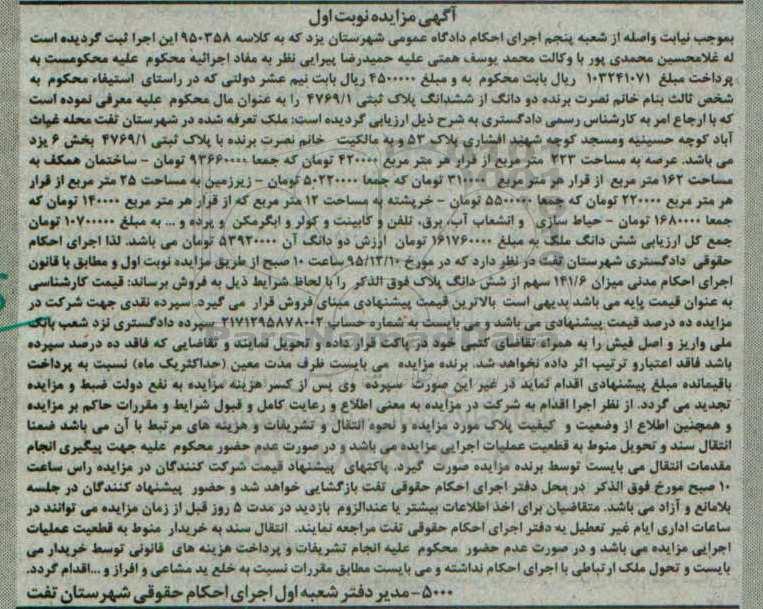 آگهی مزایده نوبت اول
بموجب نیابت واصله از شعبه پنجم اجرای احکام دادگاه عمومی شهرستان یزد که به کلاسه ۹۵۰۳۵۸ این اجرا ثبت گردیده است
له غلامحسین محمدی پور با وکالت محمد یوسف همتی علیه حمیدرضا پیرایی نظر به مفاد اجرائیه محکوم علیه محکومست به
پرداخت مبلغ ۱۰۳۲۴۱۰۷۱ ریال بابت محکوم به و مبلغ ۴۵۰۰۰۰۰ ریال بابت نیم عشر دولتی که در راستای استیفاء محکوم به
شخص ثالث بنام خانم نصرت برنده دو دانگ از ششدانگ پلاک ثبتی ۴۷۶۹/۱ را به عنوان مال محکوم علیه معرفی نموده است
که با ارجاع امر به کارشناس رسمی دادگستری به شرح ذیل ارزیابی گردیده است: ملک تعرفه شده در شهرستان تفت محله غیاث
آباد کوچه حسینیه ومسجد کوچه شهید افشاری پلاک ۵۳ و به مالکیت خانم نصرت برنده با پلاک ثبتی ۴۷۶۹/۱ بخش ۶ یزد
می باشد. عرصه به مساحت ۲۲۳ متر مربع از قرار هر متر مربع ۴۲۰۰۰۰ تومان که جمعا ۹۳۶۶۰۰۰۰ تومان - ساختمان همکف به
مساحت ۱۶۲ متر مربع از قرار هر متر مربع ۳۱۰۰۰۰ تومان که جمعا ۵۰۲۲۰۰۰۰ تومان - زیرزمین به مساحت ۲۵ متر مربع از قرار
هر متر مربع ۲۲۰۰۰۰ تومان که جمعا ۵۵۰۰۰۰۰ تومان - خرپشته به مساحت ۱۲ متر مربع که از قرار هر متر مربع ۱۴۰۰۰۰ تومان که
جمعا ۱۶۸۰۰۰۰ تومان - حیاط سازی و انشعاب آب، برق، تلفن و کابینت و کولر و ابگرمکن و پرده و ... به مبلغ ۱۰۷۰۰۰۰۰ تومان
جمع کل ارزیابی شش دانگ ملک به مبلغ ۱۶۱۷۶۰۰۰۰ تومان ارزش دو دانگ آن ۵۳۹۲۰۰۰۰ تومان می باشد. لذا اجرای احکام
حقوقی دادگستری شهرستان تفت در نظر دارد که در مورخ ۹۵/۱۲/۱۰ ساعت ۱۰ صبح از طریق مزایده نوبت اول و مطابق با قانون
اجرای احکام مدنی میزان ۱۴۱/۶ سهم از شش دانگ پلاک فوق الذکر را با لحاظ شرایط ذیل به فروش برساند: قیمت کارشناسی
به عنوان قیمت پایه می باشد بدیهی است بالاترین قیمت پیشنهادی مبنای فروش قرار می گیرد. سپرده نقدی جهت شرکت در
مزایده ده درصد قیمت پیشنهادی می باشد و می بایست به شماره حساب سپرده دادگستری نزد شعب بانک
ملی واریز و اصل فیش را به همراه تقاضای کتبی خود در پاکت قرار داده و تحویل نمایند و تقاضایی که فاقد ده درصد سپرده
باشد فاقد اعتبارو ترتیب اثر داده نخواهد شد. برنده مزایده می بایست ظرف مدت معین (حداکثریک ماه) نسبت به پرداخت
باقیمانده مبلغ پیشنهادی اقدام نماید در غیر این صورت سپرده وی پس از کسر هزینه مزایده به نفع دولت ضبط و مزایده
تجدید می گردد. از نظر اجرا اقدام به شرکت در مزایده به معنی اطلاع و رعایت کامل و قبول شرایط و مقررات حاکم بر مزایده
و همچنین اطلاع از وضعیت و کیفیت پلاک مورد مزایده و نحوه انتقال و تشریفات و هزینه های مرتبط با آن می باشد ضمنا
انتقال سند و تحویل منوط به قطعیت عملیات اجرایی مزایده می باشد و در صورت عدم حضور محکوم علیه جهت پیگیری انجام
مقدمات انتقال می بایست توسط برنده مزایده صورت گیرد. پاکتهای پیشنهاد قیمت شرکت کنندگان در مزایده راس ساعت
۱۰ صبح مورخ فوق الذکر در محل دفتر اجرای احکام حقوقی تفت بازگشایی خواهد شد و حضور پیشنهاد کنندگان در جلسه
بلامانع و آزاد می باشد. متقاضیان برای اخذ اطلاعات بیشتر یا عندالزوم بازدید در مدت ۵ روز قبل از زمان مزایده می توانند در
ساعات اداری ایام غیر تعطیل به دفتر اجرای احکام حقوقی تفت مراجعه نمایند. انتقال سند به خریدار منوط به قطعیت عملیات
اجرایی مزایده می باشد و در صورت عدم حضور محکوم علیه انجام تشریفات و پرداخت هزینه های قانونی توسط خریدار می
بایست و تحول ملک ارتباطی با اجرای احکام نداشته و می بایست مطابق مقررات نسبت به خلع ید مشاعی و افراز و ...اقدام گردد.
۵۰۰۰- مدیر دفتر شعبه اول اجرای احکام حقوقی شهرستان تفت